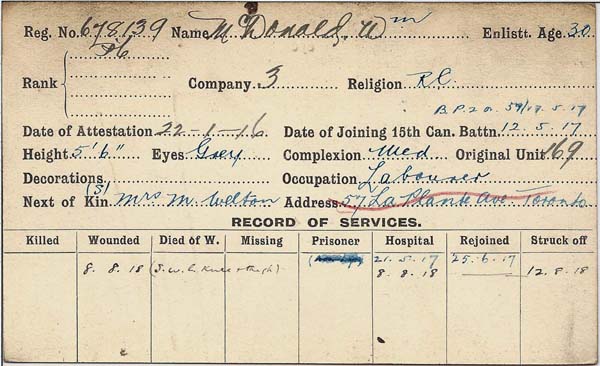 Reg. No. 678139 Name McDonald, Wm Enlistt. Age. 30
Rank Company. 3 Religion R.C.
B.P.2 o. 59/17.5.17
Date of Attestation 22-1-16 Date of Joining 15th Can. Battn. 12.5.17
Height. 5'6" Eyes Grey Complexion Med Original Unit 169
Decorations Occupation Labourer
Next of Kin (S) Mrs M. Welton Address 57 La Plante Ave. Toronto
RECORD OF SERVICES.
Killed Wounded Died of W. Missing Prisoner Hospital Rejoined Struck off
21.5.17 25.6.17
8.8.18 (S.W. L. Knee & thigh) 8.8.18 12.8.18